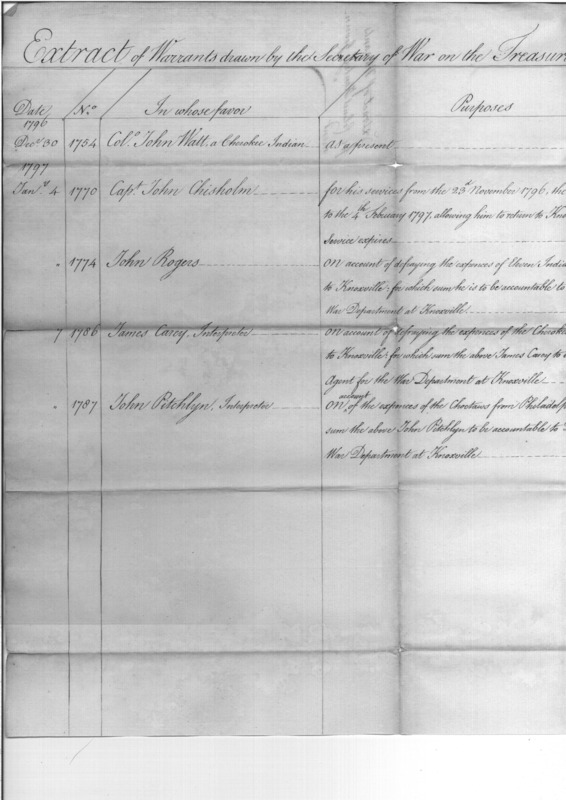 Extract of Warrants drawn by the Secretary of War on the Treasur
Date No. In whose favor Purposes
1796
Decr. 30 1754 Colo. John Watt, a Cherokee Indian as a present
1797
Jany. 4 1770 Capt. John Chisholm for his services from the 23d. November 1796, the
to the 4th. February 1797. allowing him to return to Kno
Service expires
" 1774 John Rogers on account of defraying the expences of Eleven Indi
to Knoxville; for which sum he is to be accountable to
War Department at Knoxville
7 1786 James Carey, Interpreter on account of defraying the expences of the Cherok
to Knoxville; for which sum the above James Carey to
Agent for the War Department at Knoxville
" 1787 John Pitchlyn, Interpreter on account of the expences of the Choctaws from Philadelp
sum the above John Pitchlyn to be accountable to
War Department at Knoxville